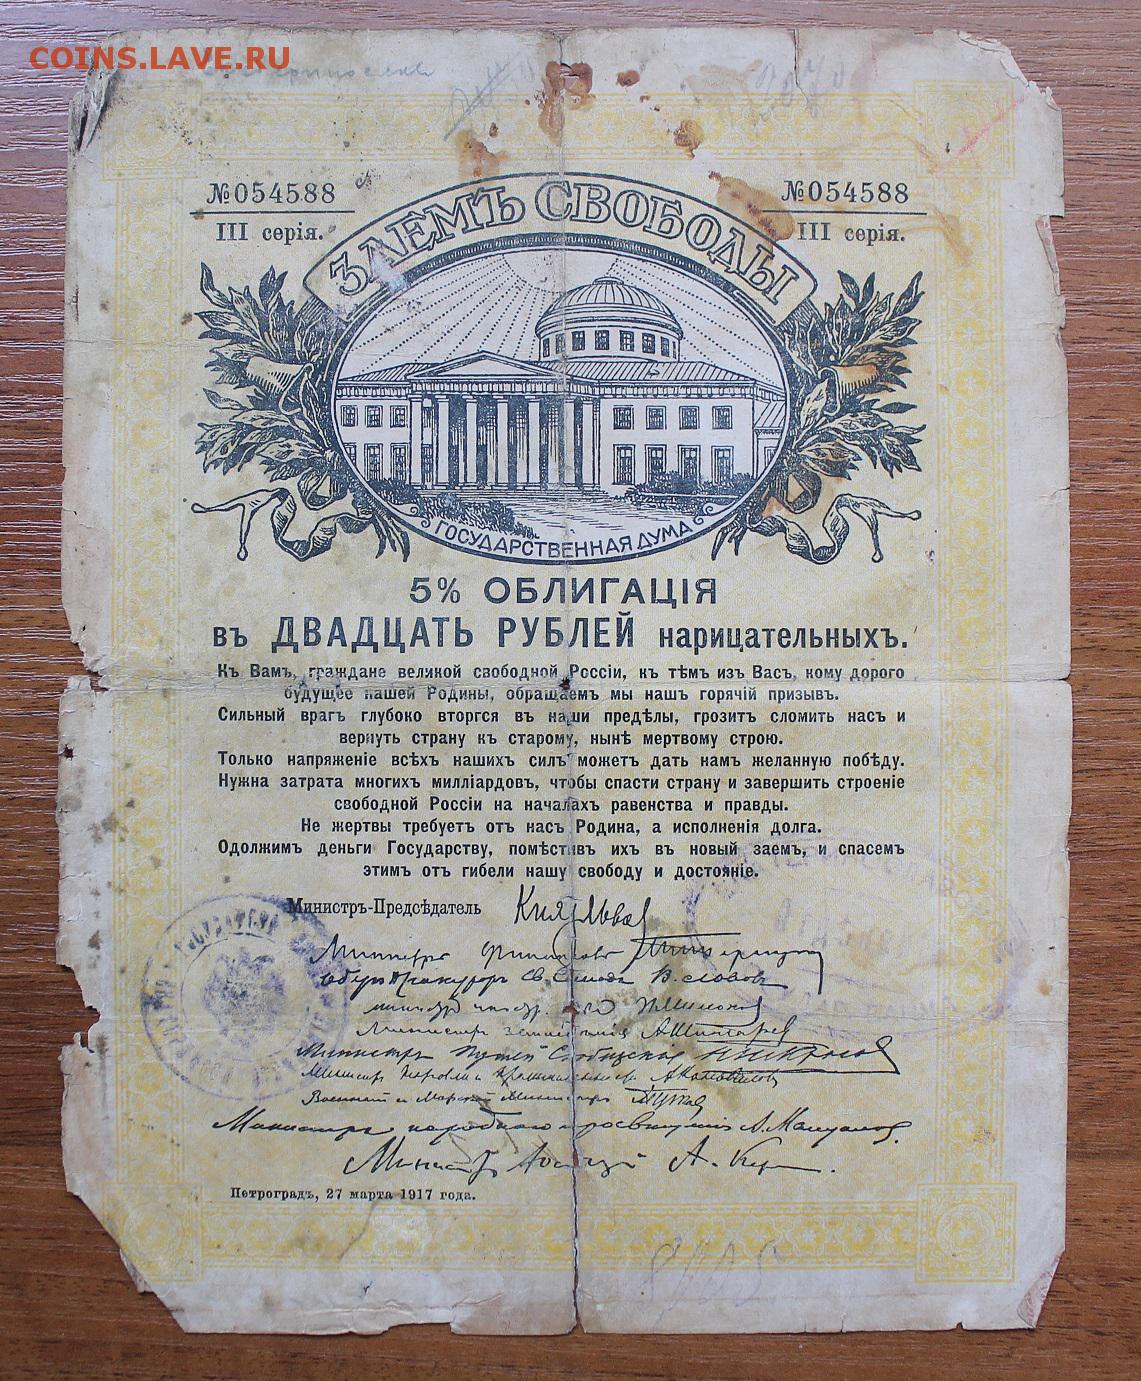 COINS.LAVE.RU
№054588 №054588
III серія. III серія.
ЗАЕМЪ СВОБОДЫ
ГОСУДАРСТВЕННАЯ ДУМА
5% ОБЛИГАЦІЯ
въ ДВАДЦАТЬ РУБЛЕЙ нарицательныхъ.
Къ Вамъ, граждане великой свободной Россіи, къ тѣмъ изъ Васъ, кому дорого
будущее нашей Родины, обращаемъ мы нашъ горячій призывъ.
Сильный врагъ глубоко вторгся въ наши предѣлы, грозитъ сломить насъ и
вернуть страну къ старому, нынѣ мертвому строю.
Только напряженіе всѣхъ нашихъ силъ можетъ дать намъ желанную побѣду.
Нужна затрата многихъ милліардовъ, чтобы спасти страну и завершить строеніе
свободной Россіи на началахъ равенства и правды.
Не жертвы требуетъ отъ насъ Родина, а исполненія долга.
Одолжимъ деньги Государству, помѣстивъ ихъ въ новый заемъ, и спасемъ
этимъ отъ гибели нашу свободу и достояніе.
Министръ-Предсѣдатель Князь Львов
Министръ Финансовъ
Оберъ Прокуроръ Св. Синода В. Львовъ
Министръ П. Милюков
Министръ Земледѣлия А. Шингарев
Министръ Путей Сообщенія Н. Некрасов
Министр Торговли и Промышленности А. Коновалов
Военный и Морской Министръ А. Гучков
Министръ народного просвещенія А. Мануйлов.
Министръ Юстиціи А. Керен.
Петроградъ, 27 марта 1917 года.